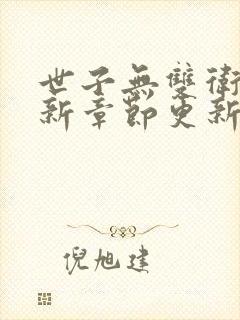 世子無雙衛
新章節更新
倪旭建